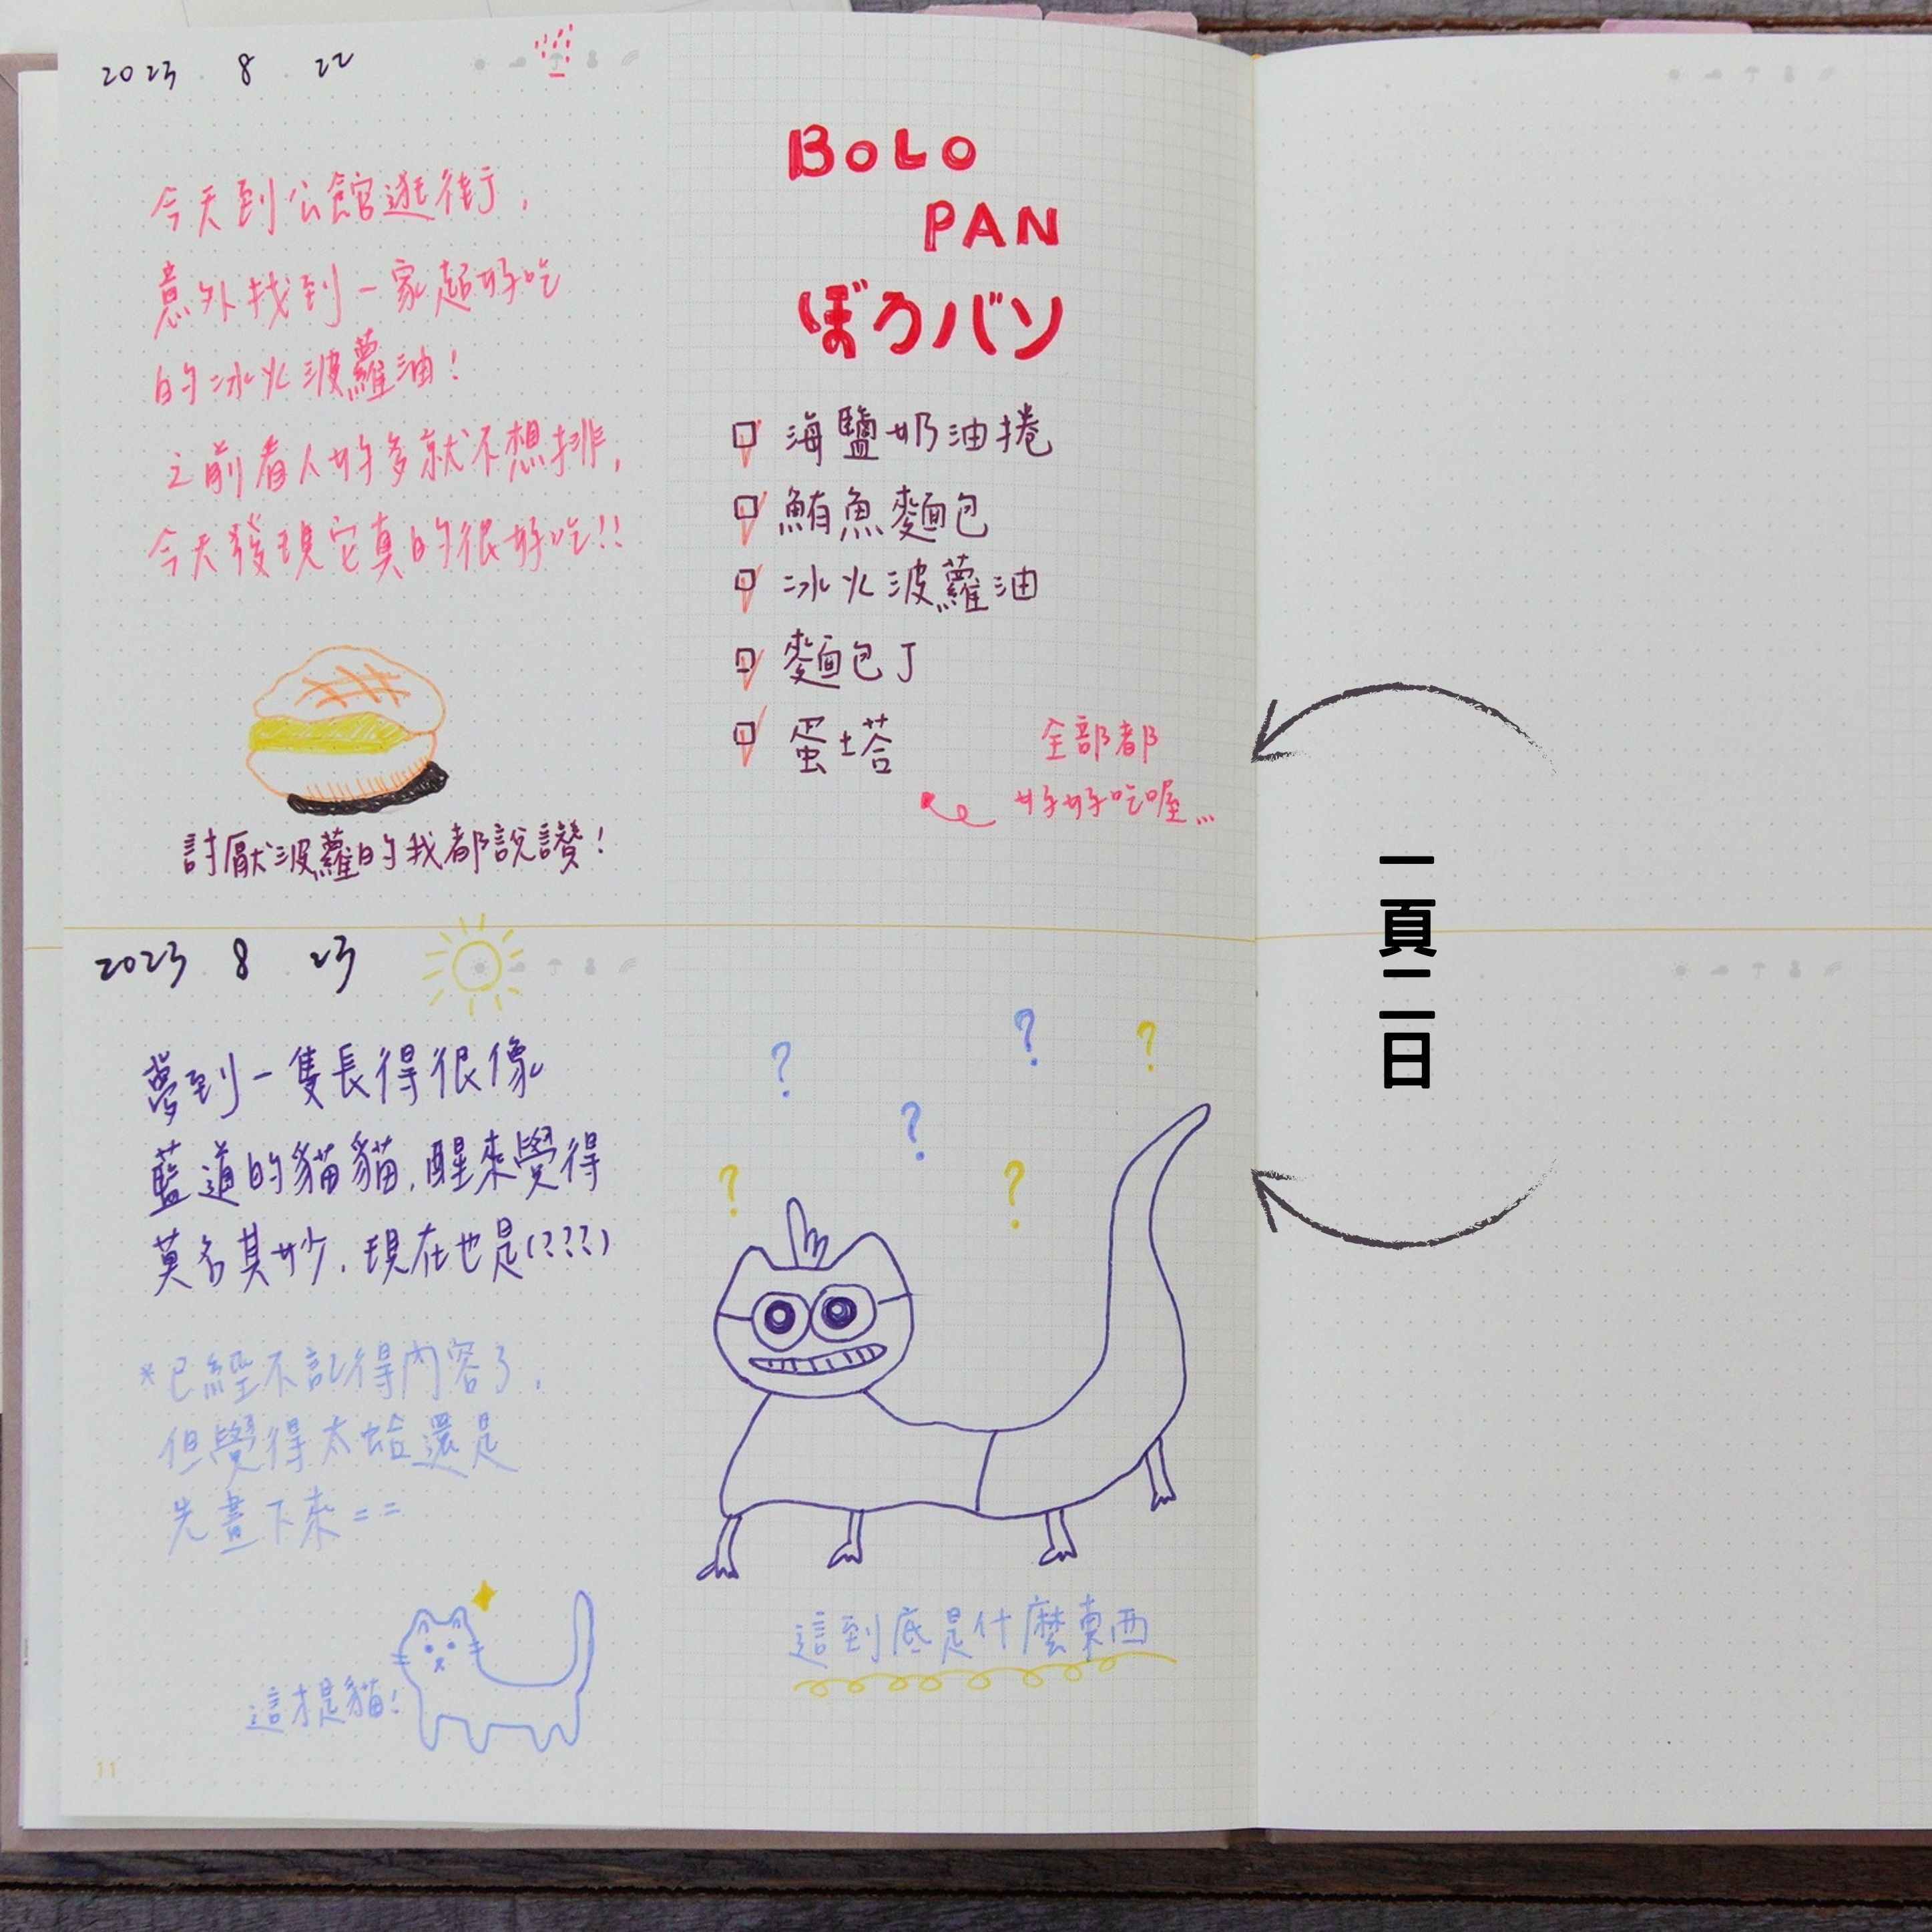 2023 . 8 . 22
今天到公館逛街，
意外找到一家超好吃
的冰火波蘿油！
之前看人好多就不想排，
今天發現它真的很好吃!!
討厭波蘿的我都說讚！
BOLO
PAN
ぼろパン
海鹽奶油捲
鮪魚麵包
冰火波蘿油
麵包丁
蛋塔
全部都
好好吃喔...
一頁二日
2023 . 8 . 23
夢到一隻長得很像
藍道的貓貓，醒來覺得
莫名其妙，現在也是(???)
*已經不記得內容了，
但覺得太蛤還是
先畫下來==
這才是貓！
? ? ? ? ? ?
這到底是什麼東西
11